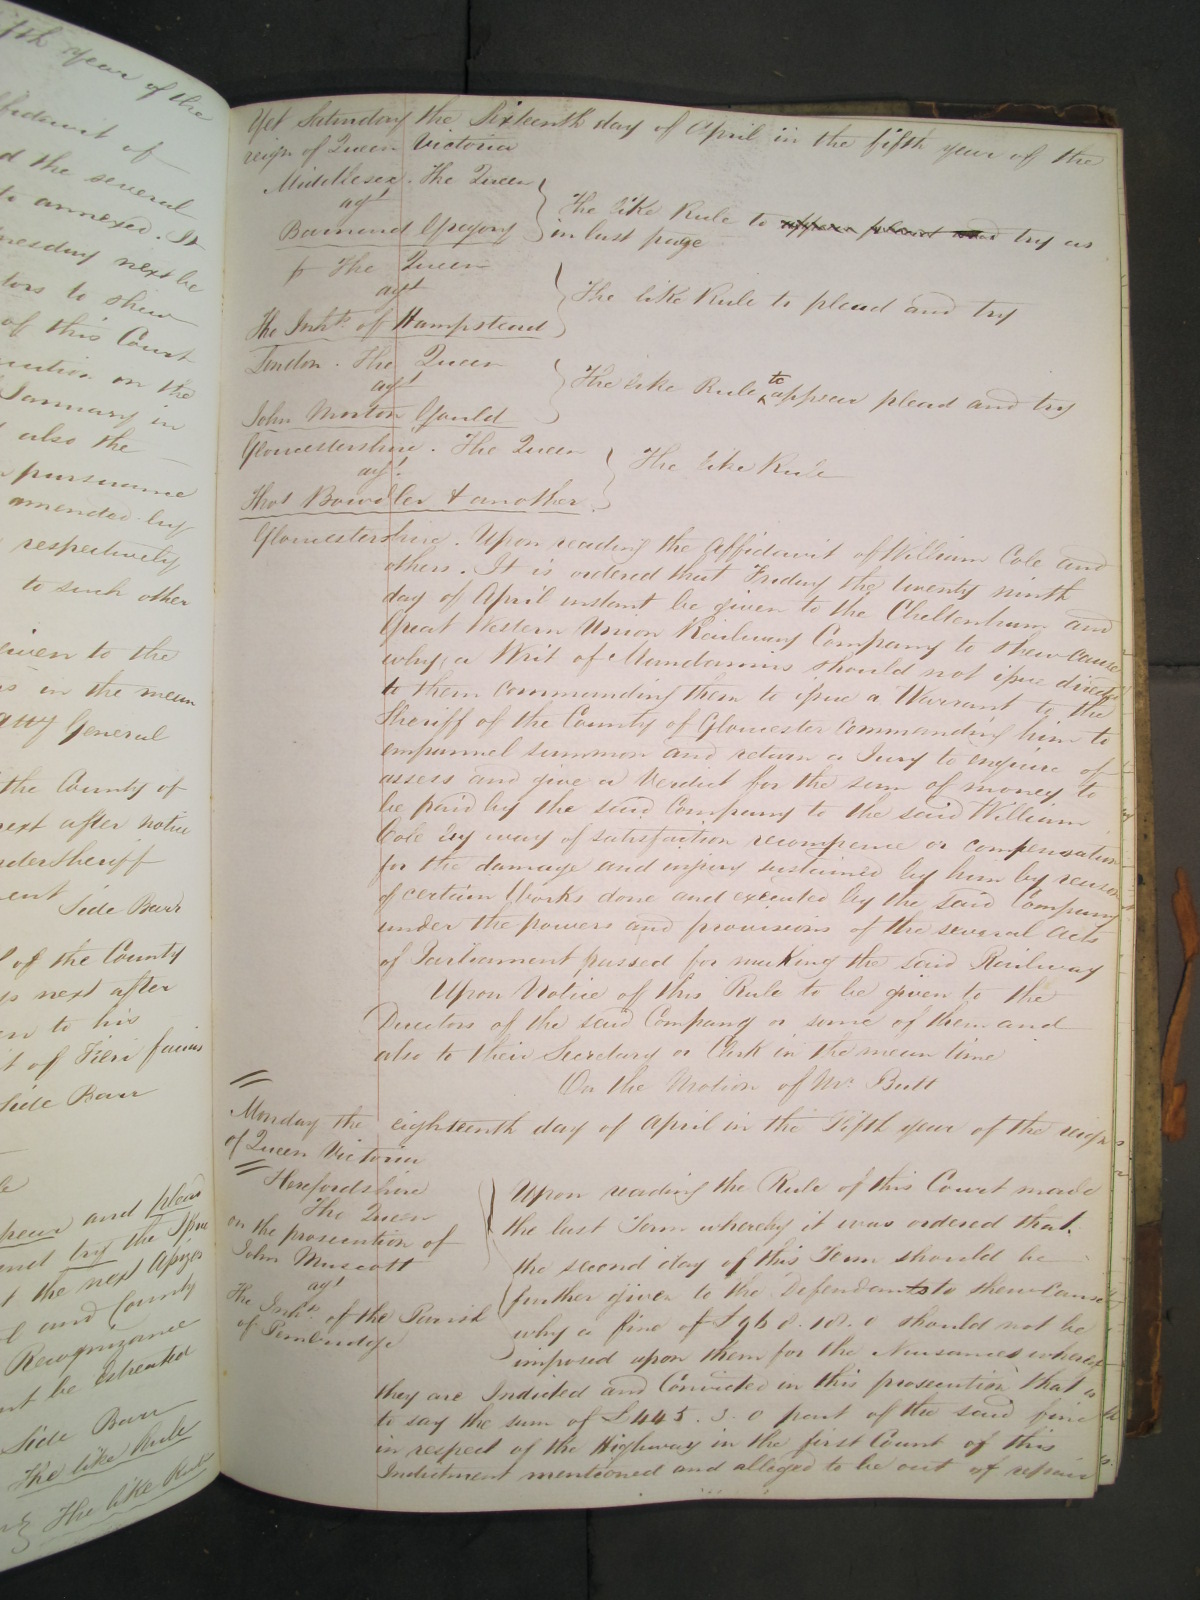 fth year of the
ffidavit of
d the several
to annexed. It
nesday next be
tors to shew
of this Court
cution on the
January in
also the
pursuance
amended by
respectively
to such other
given to the
is in the mean
Atty General
the County of
next after notice
ndersheriff
ent Side Barr
l of the County
ys next after
en to his
it of Fieri facias
Side Barr
ppear and plead
and try the Issue
t the next Assizes
l and County
Recognizance
not be Estreated
Side Barr
The like Rule
The like Rule
Yet Saturday the Sixteenth day of April in the fifth year of the
reign of Queen Victoria
Middlesex. The Queen
agt
Bamond Gregory
The like Rule to appear plead and try as
in last page
fr The Queen
agt
The Inhts. of Hampstead
The like Rule to plead and try
London. The Queen
agt
John Morton Gould
The like Rule to appear plead and try
Gloucestershire. The Queen
agt.
Thos Bowdler & another
The like Rule
Gloucestershire. Upon reading the Affidavit of William Cole and
others. It is ordered that Friday the twenty ninth
day of April instant be given to the Cheltenham and
Great Western Union Railway Company to shew cause
why a Writ of Mandamus should not issue directed
to them commanding them to issue a Warrant to the
Sheriff of the County of Gloucester commanding him to
empannel summon and return a Jury to enquire of
assess and give a Verdict for the sum of money to
be paid by the said Company to the said William
Cole by way of satisfaction recompence or compensation
for the damage and injury sustained by him by reason
of certain Works done and executed by the said Company
under the powers and provisions of the several Acts
of Parliament passed for making the said Railway
Upon Notice of this Rule to be given to the
Directors of the said Company or some of them and
also to their Secretary or Clerk in the mean time
On the Motion of Mr. Butt
Monday the eighteenth day of April in the Fifth year of the reign
of Queen Victoria
Herefordshire
The Queen
on the prosecution of
John Muscott
agt
The Inhts. of the Parish
of Pembridge
Upon reading the Rule of this Court made
the last Term whereby it was ordered that
the second day of this Term should be
further given to the Defendants to shew Cause
why a fine of £968.18.0 should not be
imposed upon them for the Nusances whereof
they are Indicted and Convicted in this prosecution that is
to say the sum of £445.3.0 part of the said fine
in respect of the Highway in the first Count of this
Indictment mentioned and alleged to be out of repair